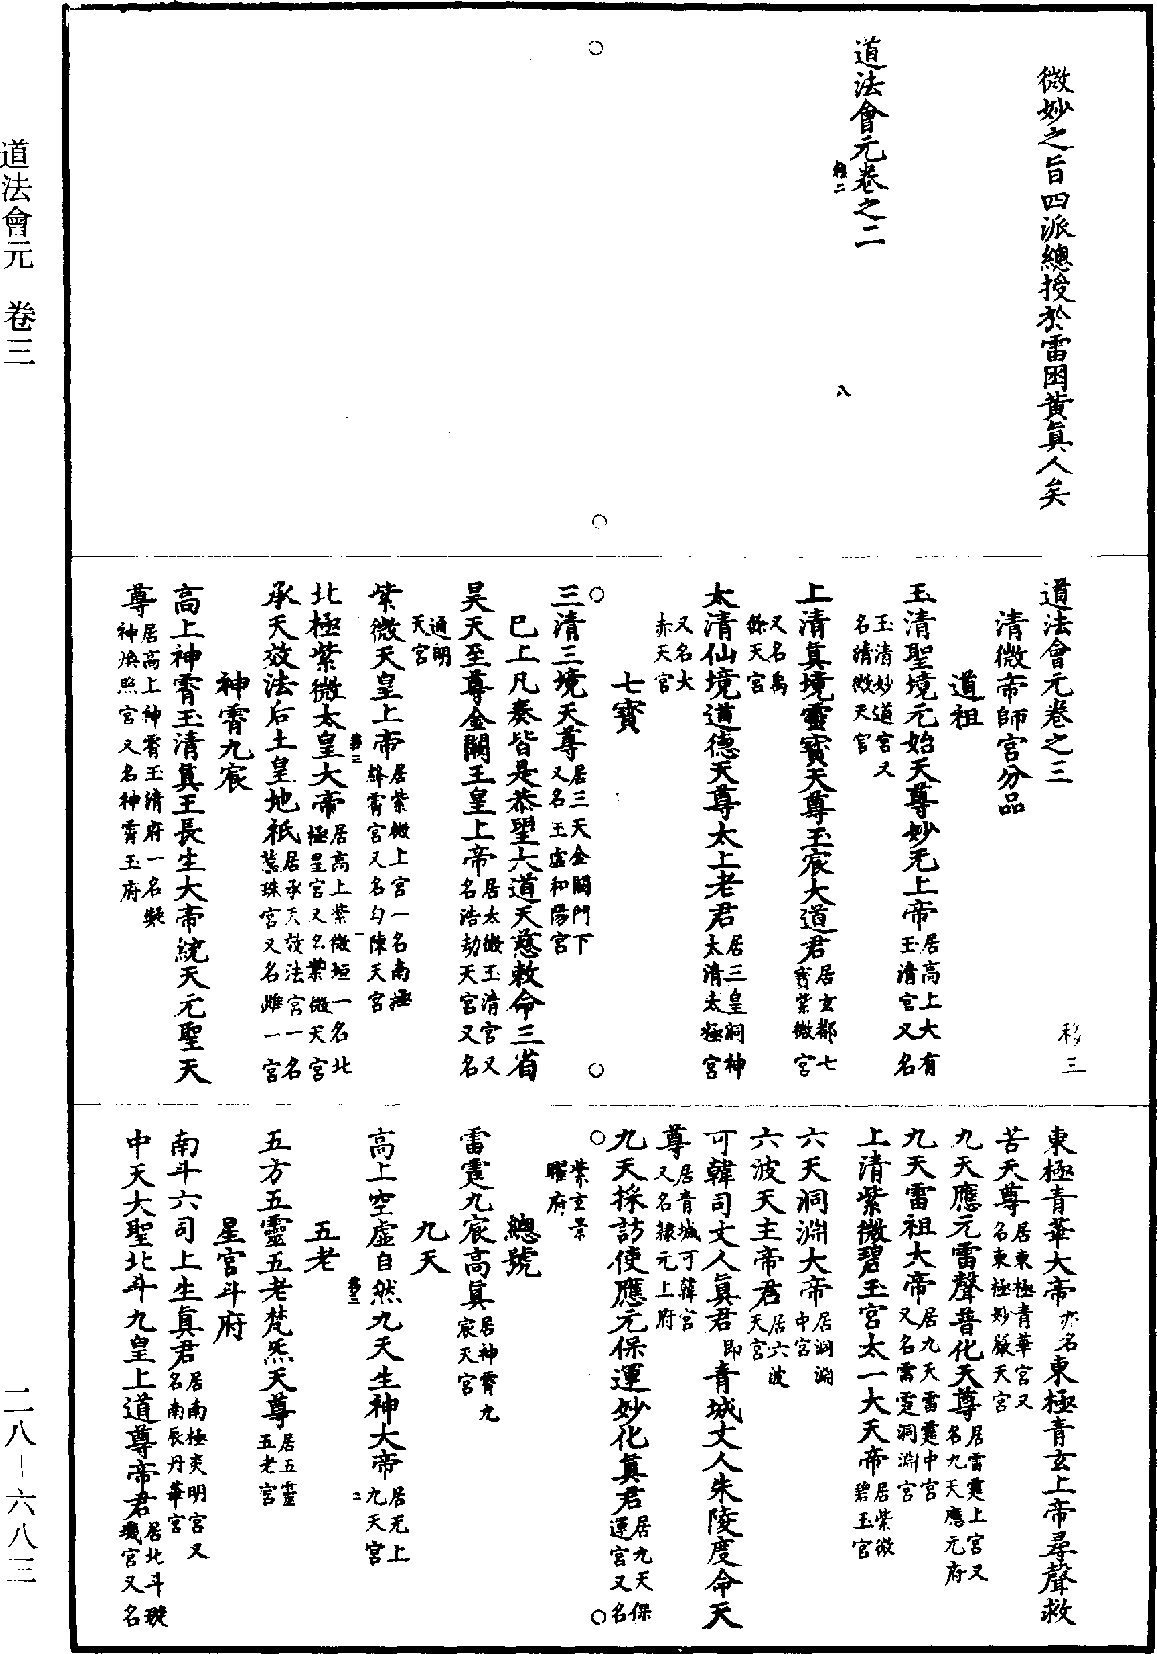 道法會元　卷三
二八－六八三
微妙之旨四派總授於雷困黃真人矣
道法會元卷之二
八
道法會元卷之三
移三
清微帝師宮分品
道祖
玉清聖境元始天尊妙无上帝居高上大有玉清宮又名
玉清妙道宮又名清微天宮
上清真境靈寶天尊玉宸大道君居玄都七寶紫微宮
又名禹餘天宮
太清仙境道德天尊太上老君居三皇洞神太清太極宮
又名大赤天宮
七寶
三清三境天尊居三天金闕門下又名玉虛和陽宮
已上凡奏皆是恭望大道天慈敕命三省
昊天至尊金闕玉皇上帝居太微玉清宮又名浩劫天宮又名
通明天宮
紫微天皇上帝居紫微上宮一名南極絳霄宮又名勾陳天宮
北極紫微太皇大帝居高上紫微垣一名北極皇宮又名紫微天宮
承天效法后土皇地祇居承天效法宮一名蘂珠宮又名雌一宮
神霄九宸
高上神霄玉清真王長生大帝統天元聖天
尊居高上神霄玉清府一名凝神煥照宮又名神霄玉府
東極青華大帝亦名東極青玄上帝尋聲救
苦天尊居東極青華宮又名東極妙嚴天宮
九天應元雷聲普化天尊居雷霆上宮又名九天應元府
九天雷祖大帝居九天雷霆中宮又名雷霆洞淵宮
上清紫微碧玉宮太一大天帝居紫微碧玉宮
六天洞淵大帝居洞淵中宮
六波天主帝君居六波天宮
可韓司丈人真君即青城丈人朱陵度命天
尊居青城可韓宮又名隸元上府
九天採訪使應元保運妙化真君居九天保運宮又名
紫玄景曜府
總號
雷霆九宸高真居神霄九宸天宮
九天
高上空虛自然九天生神大帝居无上九天宮
五老
五方五靈五老梵炁天尊居五靈五老宮
星宮斗府
南斗六司上生真君居南極炎明宮又名南辰丹華宮
中天大聖北斗九皇上道尊帝君居北斗璇璣宮又名